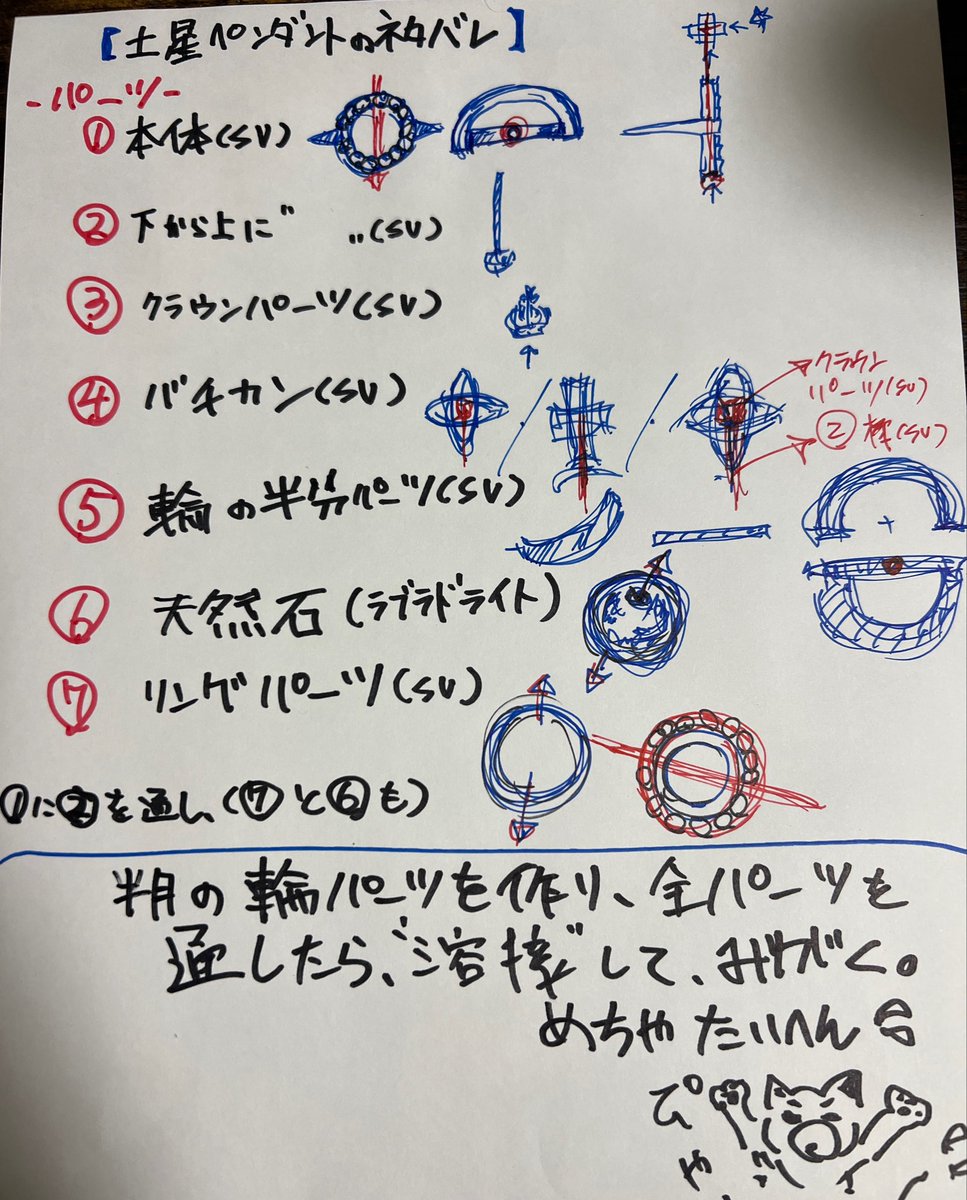 【土星ペンダントのネタバレ】
-パーツ-
① 本体(SV)
② 下から上に〃 〃(SV)
③ クラウンパーツ(SV)
④ バチカン(SV)
クラウン
パーツ(SU)
②棒(SU)
⑤ 輪の半分パーツ(SV)
⑥ 天然石(ラブラドライト)
⑦ リングパーツ(SV)
①に②を通し、(⑦と⑥も)
半月の輪パーツを作り、全パーツを
通したら、“溶接”して、みがく。
めちゃたいへん
ぴ
ゃ